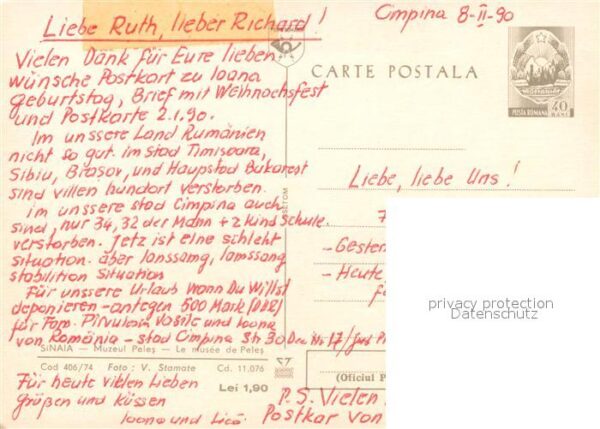 Liebe Ruth, lieber Richard!
Cimpina 8-II-90
Vielen Dank für Eure lieben
wünsche Postkart zu Ioana
geburtstag, Brief mit Weihnachsfest
und Postkarte 2.1.90.
Im unssere Land Rumänien
nicht so gut. im stad Timisoara,
Sibiu, Brașov, und Haupstad Bukarest
sind villen hundort verstorben.
im unssere stad Cimpina auch
sind, nur 34, 32 der Mann + 2 kind Schule.
verstorben. Jetz ist eine schleht
situation. aber lanssamg, lamssang
stabilition situation
Für unssere Urlaub wann Du Willst
deponieren - antegen 500 Mark (DDR)
für Fam. Pirvulescu Vasile und Ioana
von România - stad Cimpina Str 30 Dec Nr 17/Jud P
SINAIA — Muzeul Peleș — Le musée de Peleș
Cod 406/74 Foto: V. Stamate Cd. 11.076
Lei 1,90
Für heute vielen Lieben
grüßen und küssen
Ioana und
CARTE POSTALA
POSTA ROMANA 40 BANI
Liebe, liebe Uns!
7
- Gester
- Heute
fü
privacy protection
Datenschutz
(Oficiul P
P.S. Vielen
Postkar von